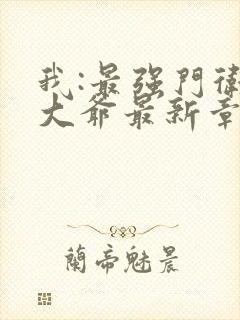 我:最强門衛
大爺最新章
蘭帝魅晨